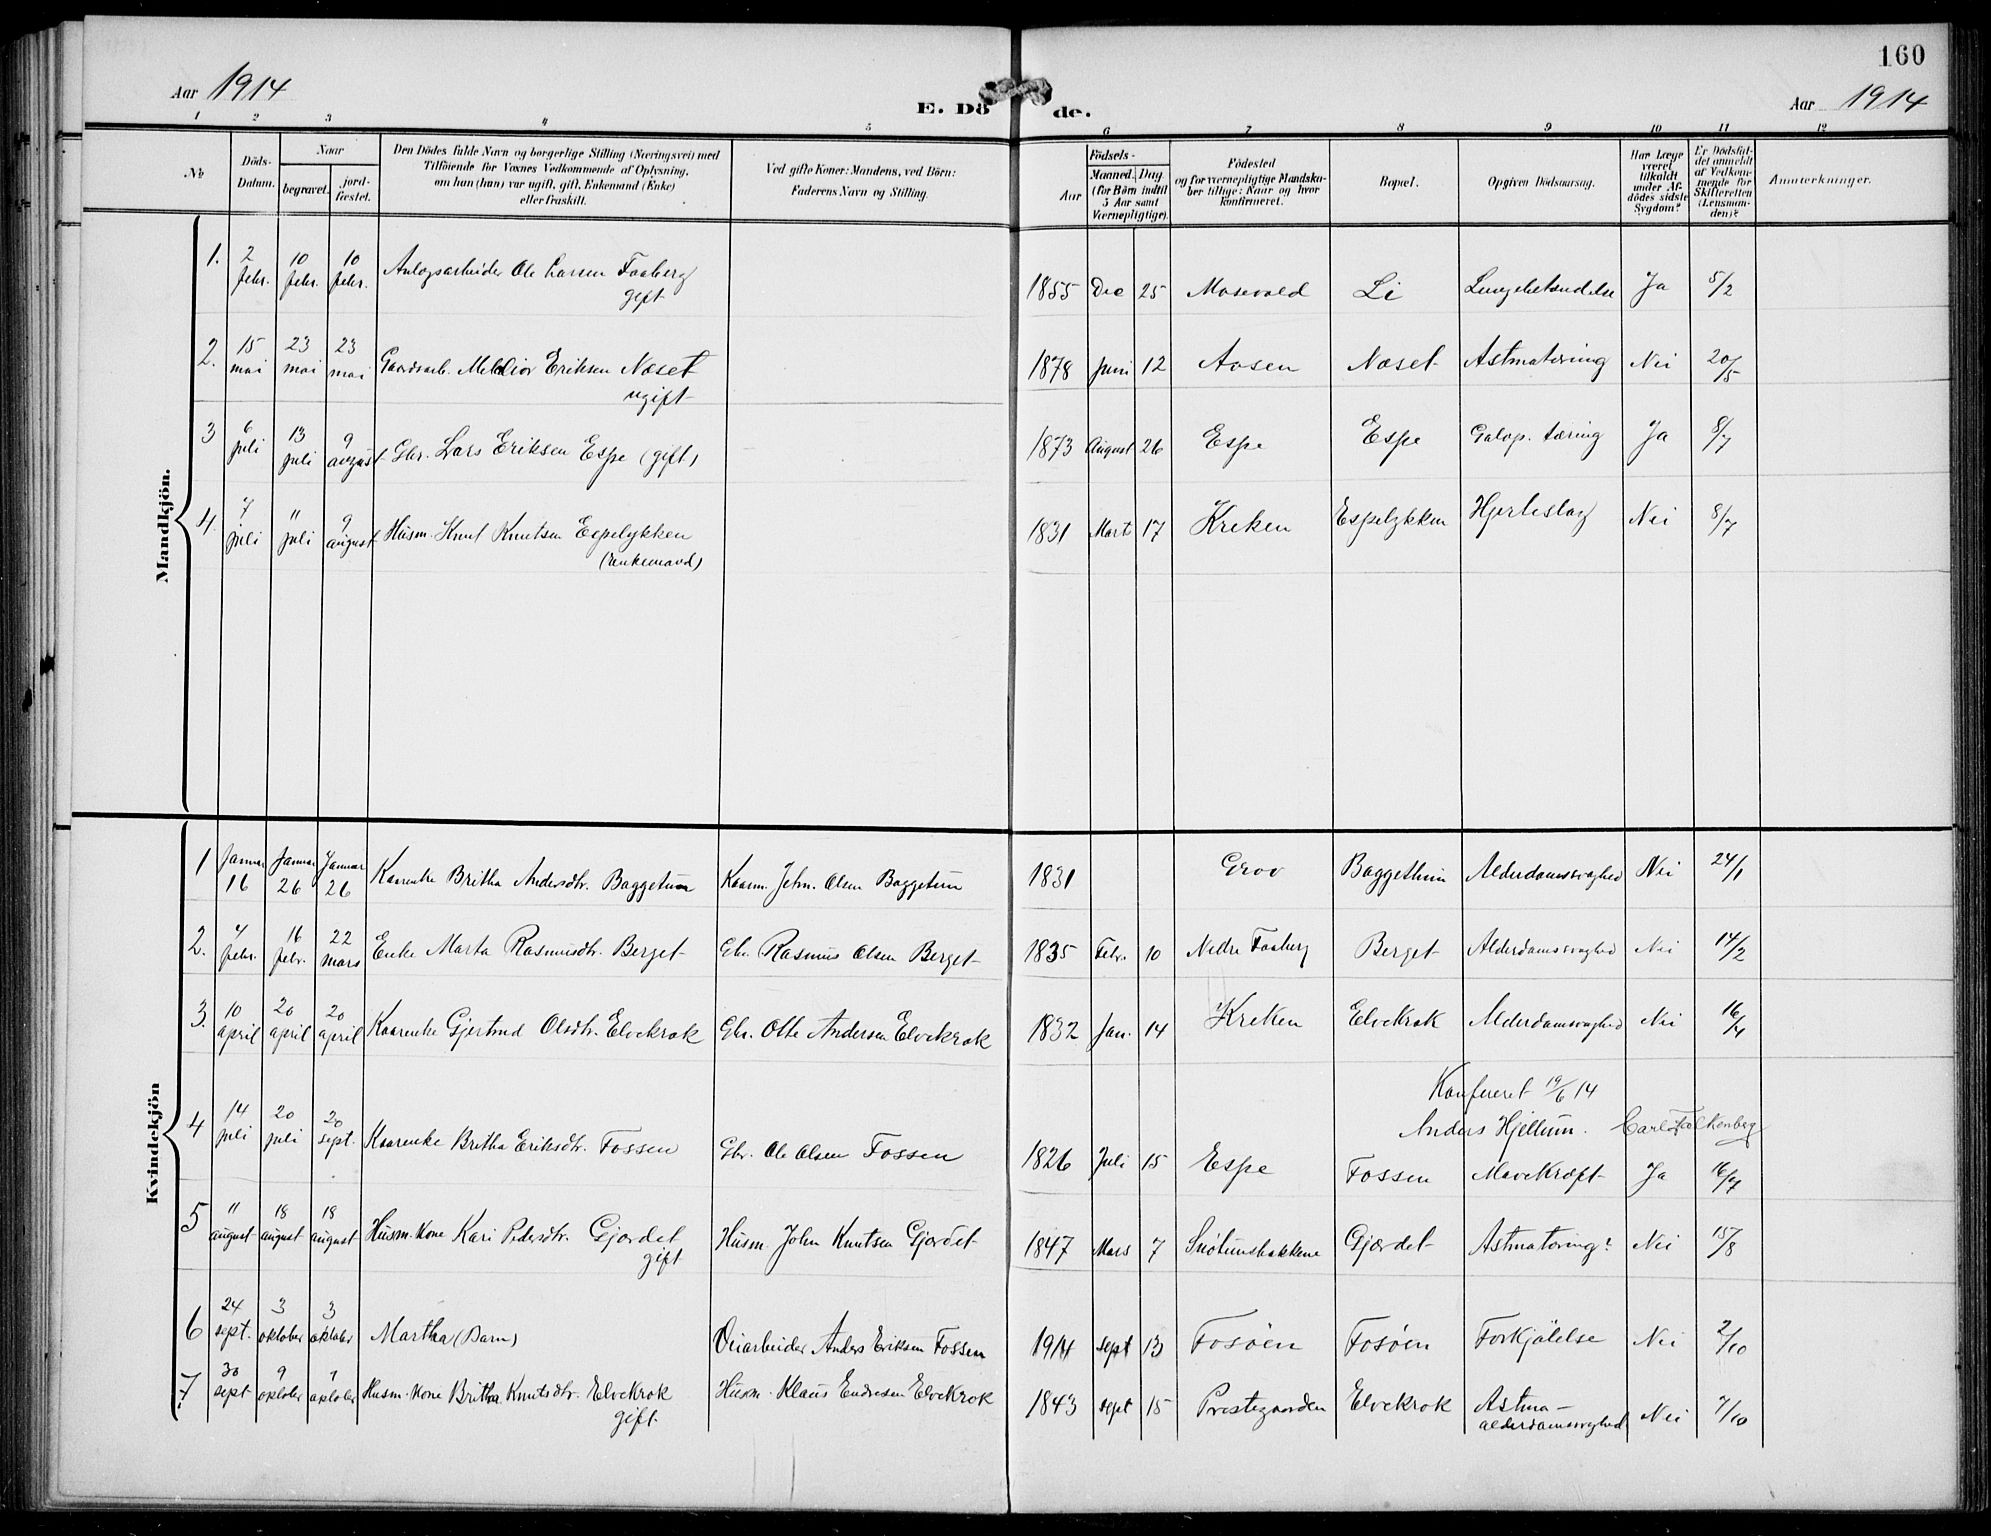 160
Aar 1914
E. Döde.
Aar 1914
1 2 3 4 5 6 7 8 9 10 11 12
№
Döds-Datum.
Naar
begravet.
jord-fæstet.
Den Dödes fulde Navn og borgerlige Stilling (Næringsvei) med
Tilföiende for Voxnes Vedkommende af Oplysning,
om han (hun) var ugift, gift, Enkemand (Enke)
eller fraskilt.
Ved gifte Koner: Mandens, ved Börn:
Faderens Navn og Stilling.
Födsels-
Aar
Maaned. Dag.
(for Börn indtil
5 Aar samt
Værnepligtige).
Födested
og for værnepligtige Mandska-
ber tillige: Naar og hvor
konfirmeret.
Bopæl.
Opgiven Dödsaarsag.
Har Læge
været
tilkaldt
under Af-
dödes sidste
Sygdom?
Er Dödsfal-
det anmeldt
af Vedkom-
mende for
Skifteretten
(Lensman-
den)?
Anmærkninger.
Mandkjön.
1. 2 febr. 10 febr. 10 febr. Anlægsarbeider Ole Larsen Faaberg gift 1855 Dec 25 Mosevold Li Lungebetændelse Ja 5/2
2. 15 mai 23 mai 23 mai Gaardsarb. Melkior Eriksen Næset ugift 1878 Juni 12 Aasen Næset Astmatæring Nei 20/5
3 6 juli 13 juli 9 august Gbr. Lars Eriksen Espe (gift) 1873 August 26 Espe Espe Galop. tæring Ja 8/7
4. 7 juli 11 juli 9 august Husm. Knut Knutsen Espelykken (enkemand) 1831 Mart 17 Kreken Espelykken Hjerteslag Nei 8/7
Kvindekjön
1 Januar 16 Januar 26 Januar 26 Kaarenke Britha Andersdtr. Baggetun Kaarm. Jehn. Olsen Baggetun 1831 Grov Baggethun Alderdomssvaghed Nei 24/1
2. 4 febr. 16 febr. 22 mars Enke Marta Rasmusdtr. Berget Gbr. Rasmus Olsen Berget 1835 Febr. 10 Nedre Faaberg Berget Alderdomssvaghed Nei 14/2
3. 10 april 20 april 20 april Kaarenke Gjertrud Olsdtr. Elvekrok Gbr. Otte Andersen Elvekrok 1832 Jan. 14 Kreken Elvekrok Alderdomssvaghed Nei 16/4
Konfereret 19/6 14
Anders Hjellum. Carl Falkenberg
4 14 juli 20 juli 20 sept. Kaarenke Britha Eriksdtr. Fossen Gbr. Ole Olsen Fossen 1826 Juli 15 Espe Fossen Mavekræft Ja 16/7
5 11 august 18 august 18 august Husm. Kone Kari Pedersdtr. Gjærdet gift Husm. John Knutsen Gjærdet 1847 Mars 7 Snøtunsbakkene Gjærdet Astmatæring? Nei 15/8
6 24 sept. 3 oktober 3 oktober Martha (Barn) Veiarbeider Anders Eriksen Fossen 1914 sept 13 Fosøen Fosøen Forkjölelse Nei 2/10
7. 30 sept 9 oktober 9 oktober Husm. Kone Britha Knutsdtr. Elvekrok gift Husm. Klaus Endresen Elvekrok 1843 sept 15 Prestegaarden Elvekrok Astma - alderdomssvaghed Nei 7/10